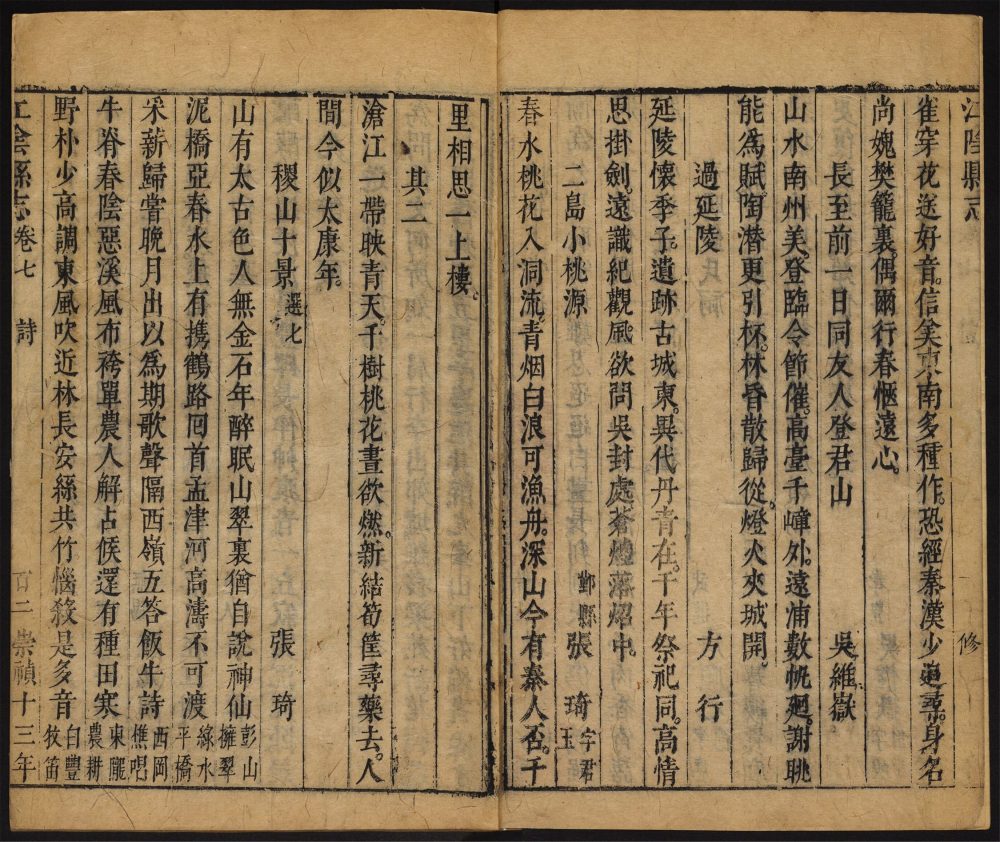 江陰縣志
修
雀穿花送好音。信美東南多種作。恐經秦漢少過尋。身名
尚媿樊籠裏。偶爾行春愜遠心。
長至前一日同友人登君山 吳維嶽
山水南州美。登臨令節催。高臺千嶂外。遠浦數帆廻。謝眺
能爲賦。陶潛更引杯。林昏散歸從。燈火夾城開。
過延陵 方 行
延陵懷季子。遺跡古城東。異代丹青在。千年祭祀同。高情
思掛劍。遠識紀觀風。欲問吳封處。蒼烟落炤中。
二島小桃源 鄞縣 張 琦 字君玉
春水桃花入洞流。青烟白浪可漁舟。深山今有秦人否。千
里相思一上樓。
其二
滄江一帶映青天。千樹桃花晝欲燃。新結笱筐尋藥去。人
間今似太康年。
稷山十景 選七 張 琦
山有太古色人無金石年醉眠山翠裏猶自說神仙 彭山擁翠
泥橋亞春水上有携鶴路回首孟津河高濤不可渡 綠水平橋
采薪歸嘗晚月出以爲期歌聲隔西嶺五答飯牛詩 西岡樵唱
牛脊春陰惡溪風布袴單農人解占候還有種田寒 東隴農耕
野朴少高調東風吹近林長安絲共竹惱殺是多音 白豐牧笛
江陰縣志 卷七 詩 百二 崇禎十三年